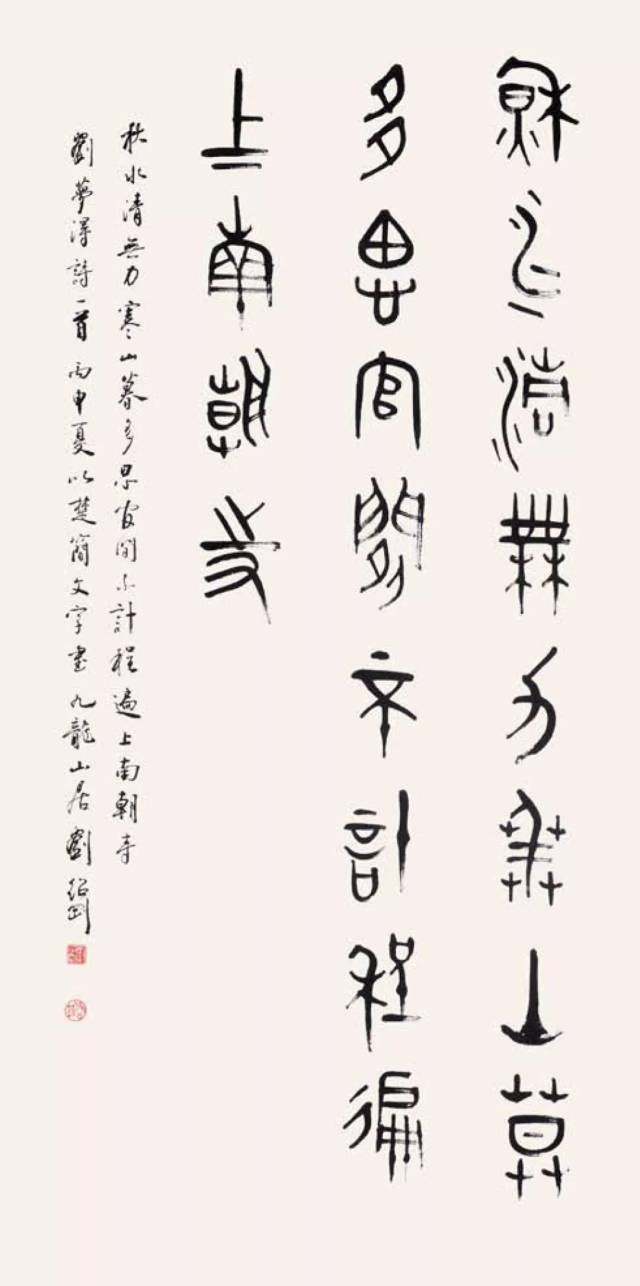 秋水清無力寒山暮
多思官閒不計程徧
上南朝寺
秋水清無力寒山暮多思官閒不計程遍上南朝寺
劉夢得詩一首丙申夏以楚簡文字書九龍山居劉紹剛